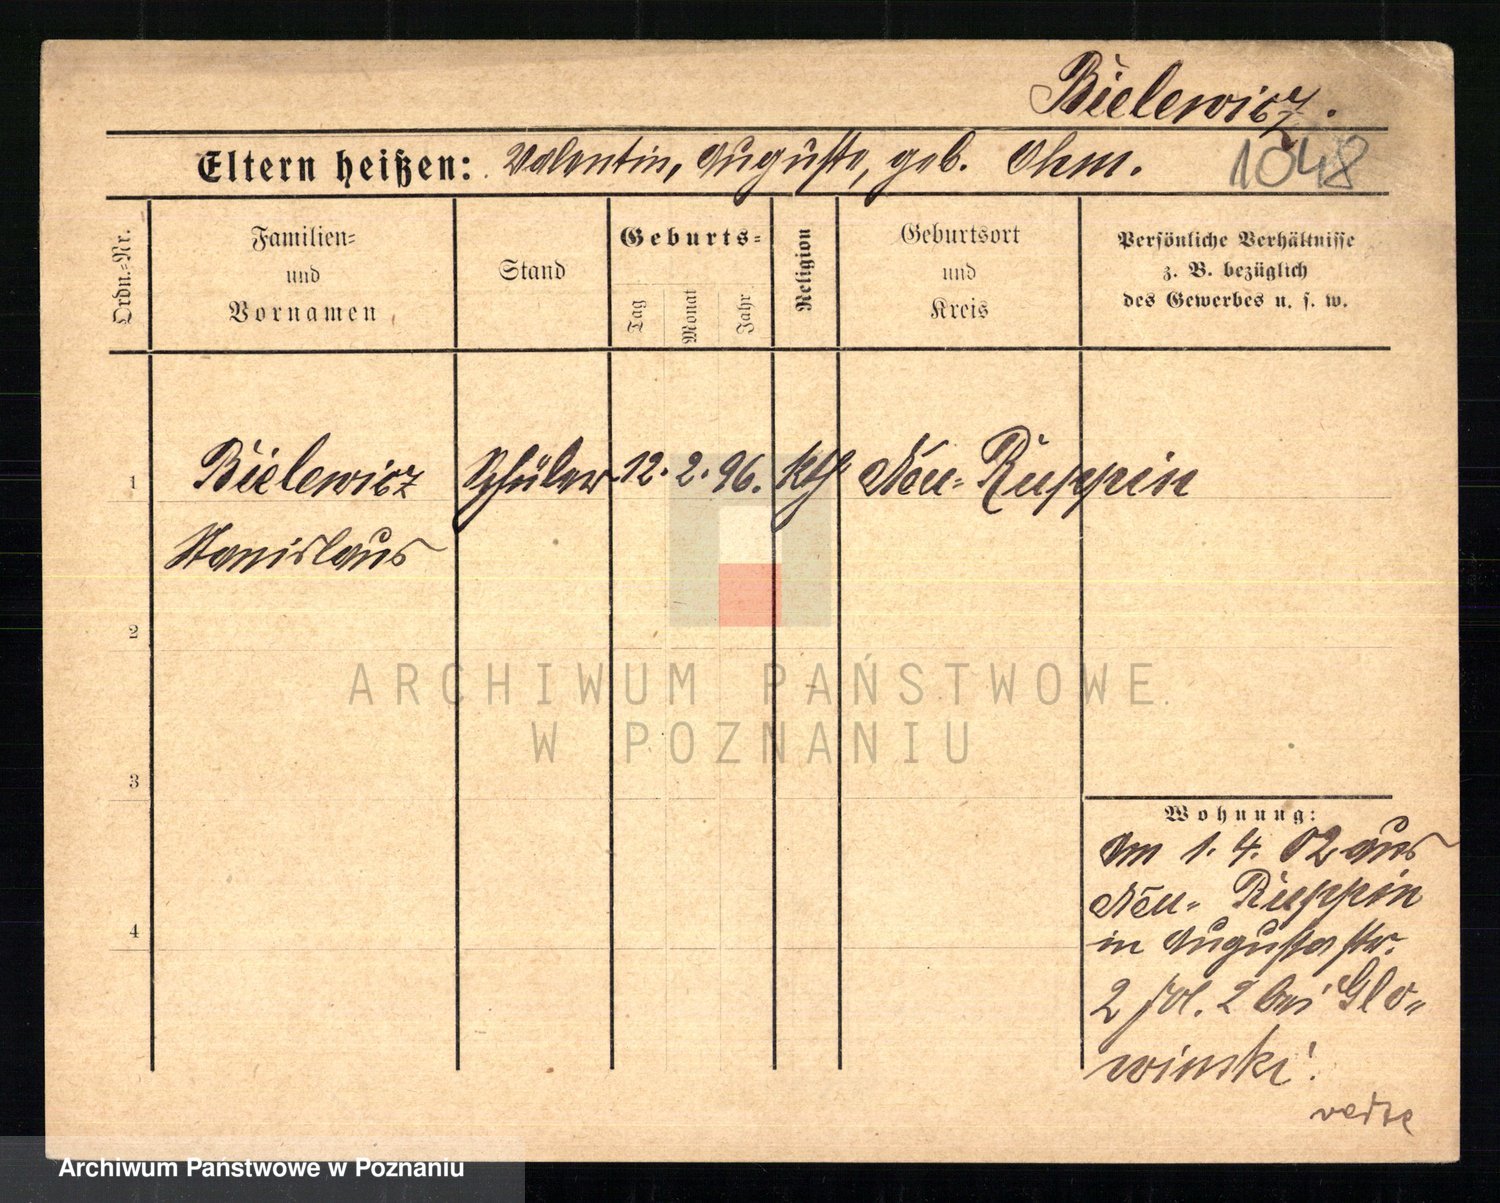 Bielewicz.
Eltern heißen: Valentin, Auguste, geb. Ohm.
1048
Ordn.-Nr.
Familien-
und
Vornamen
Stand
Geburts-
Tag
Monat
Jahr
Religion
Geburtsort
und
Kreis
Persönliche Verhältnisse
z. B. bezüglich
des Gewerbes u. s. w.
1 Bielewicz Schüler 12. 2. 96. kth Neu-Ruppin
Stanislaus
2
3
4
Wohnung:
Am 1. 4. 02 aus
Neu-Ruppin
in Augustastr.
2 fol. 2 bei Glo-
winski.
verte
ARCHIWUM PAŃSTWOWE
W POZNANIU
Archiwum Państwowe w Poznaniu